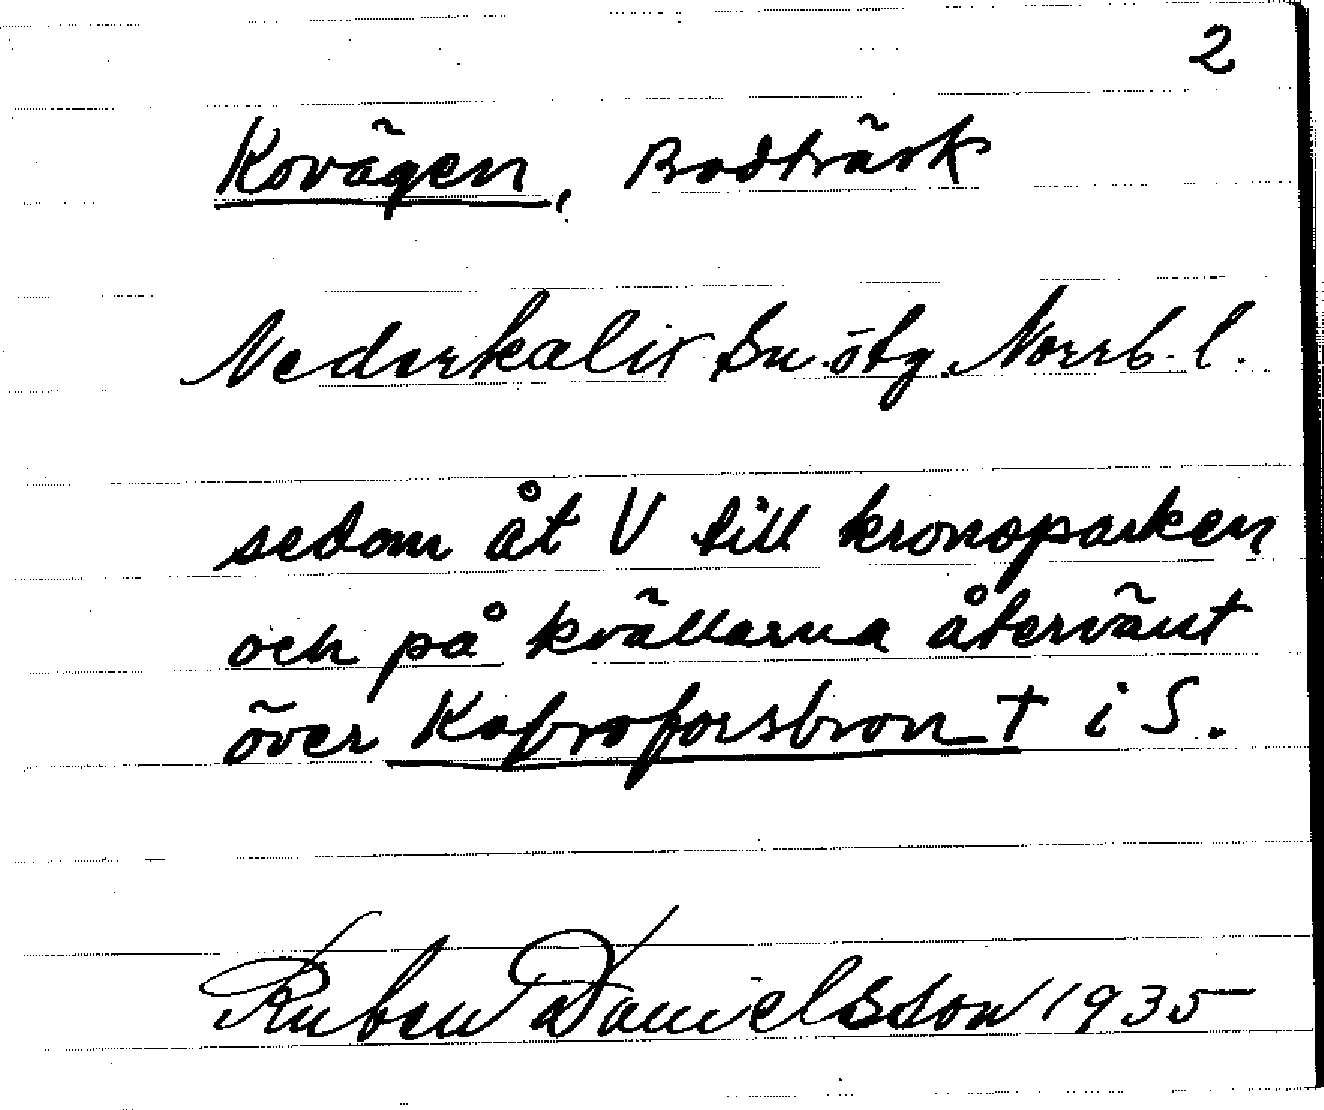 2
Kovägen, Bodträsk
Nederkalix sn. ötg. Norrb. l.
sedan åt V till kronoparken
och på kvällarna återvänt
över Kabroforsbron † i S.
Ruben Danielsson 1935